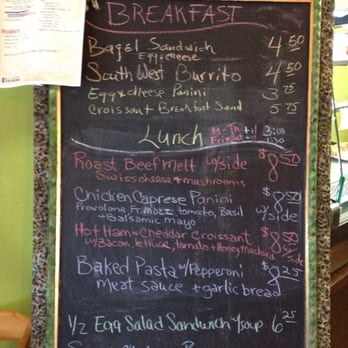 BREAKFAST
Bagel Sandwich 4.50
Egg & cheese
SouthWest Burrito 4.50
Egg & cheese Panini 3.75
Croissant Breakfast Sand 5.75
Lunch M-Th til 3:00
Roast Beef Melt w/side $8.50
Swiss cheese & mushrooms
Chicken Caprese Panini $8.50
Provolone, Fr. Mozz, tomato, Basil w/side
& Balsamic mayo
Hot Ham & Cheddar Croissant $8.50
w/Bacon, lettuce, tomato & Honey Mustard
Baked Pasta w/Pepperoni $8.25
meat sauce & garlic bread
1/2 Egg Salad Sandwich w/soup 6.25